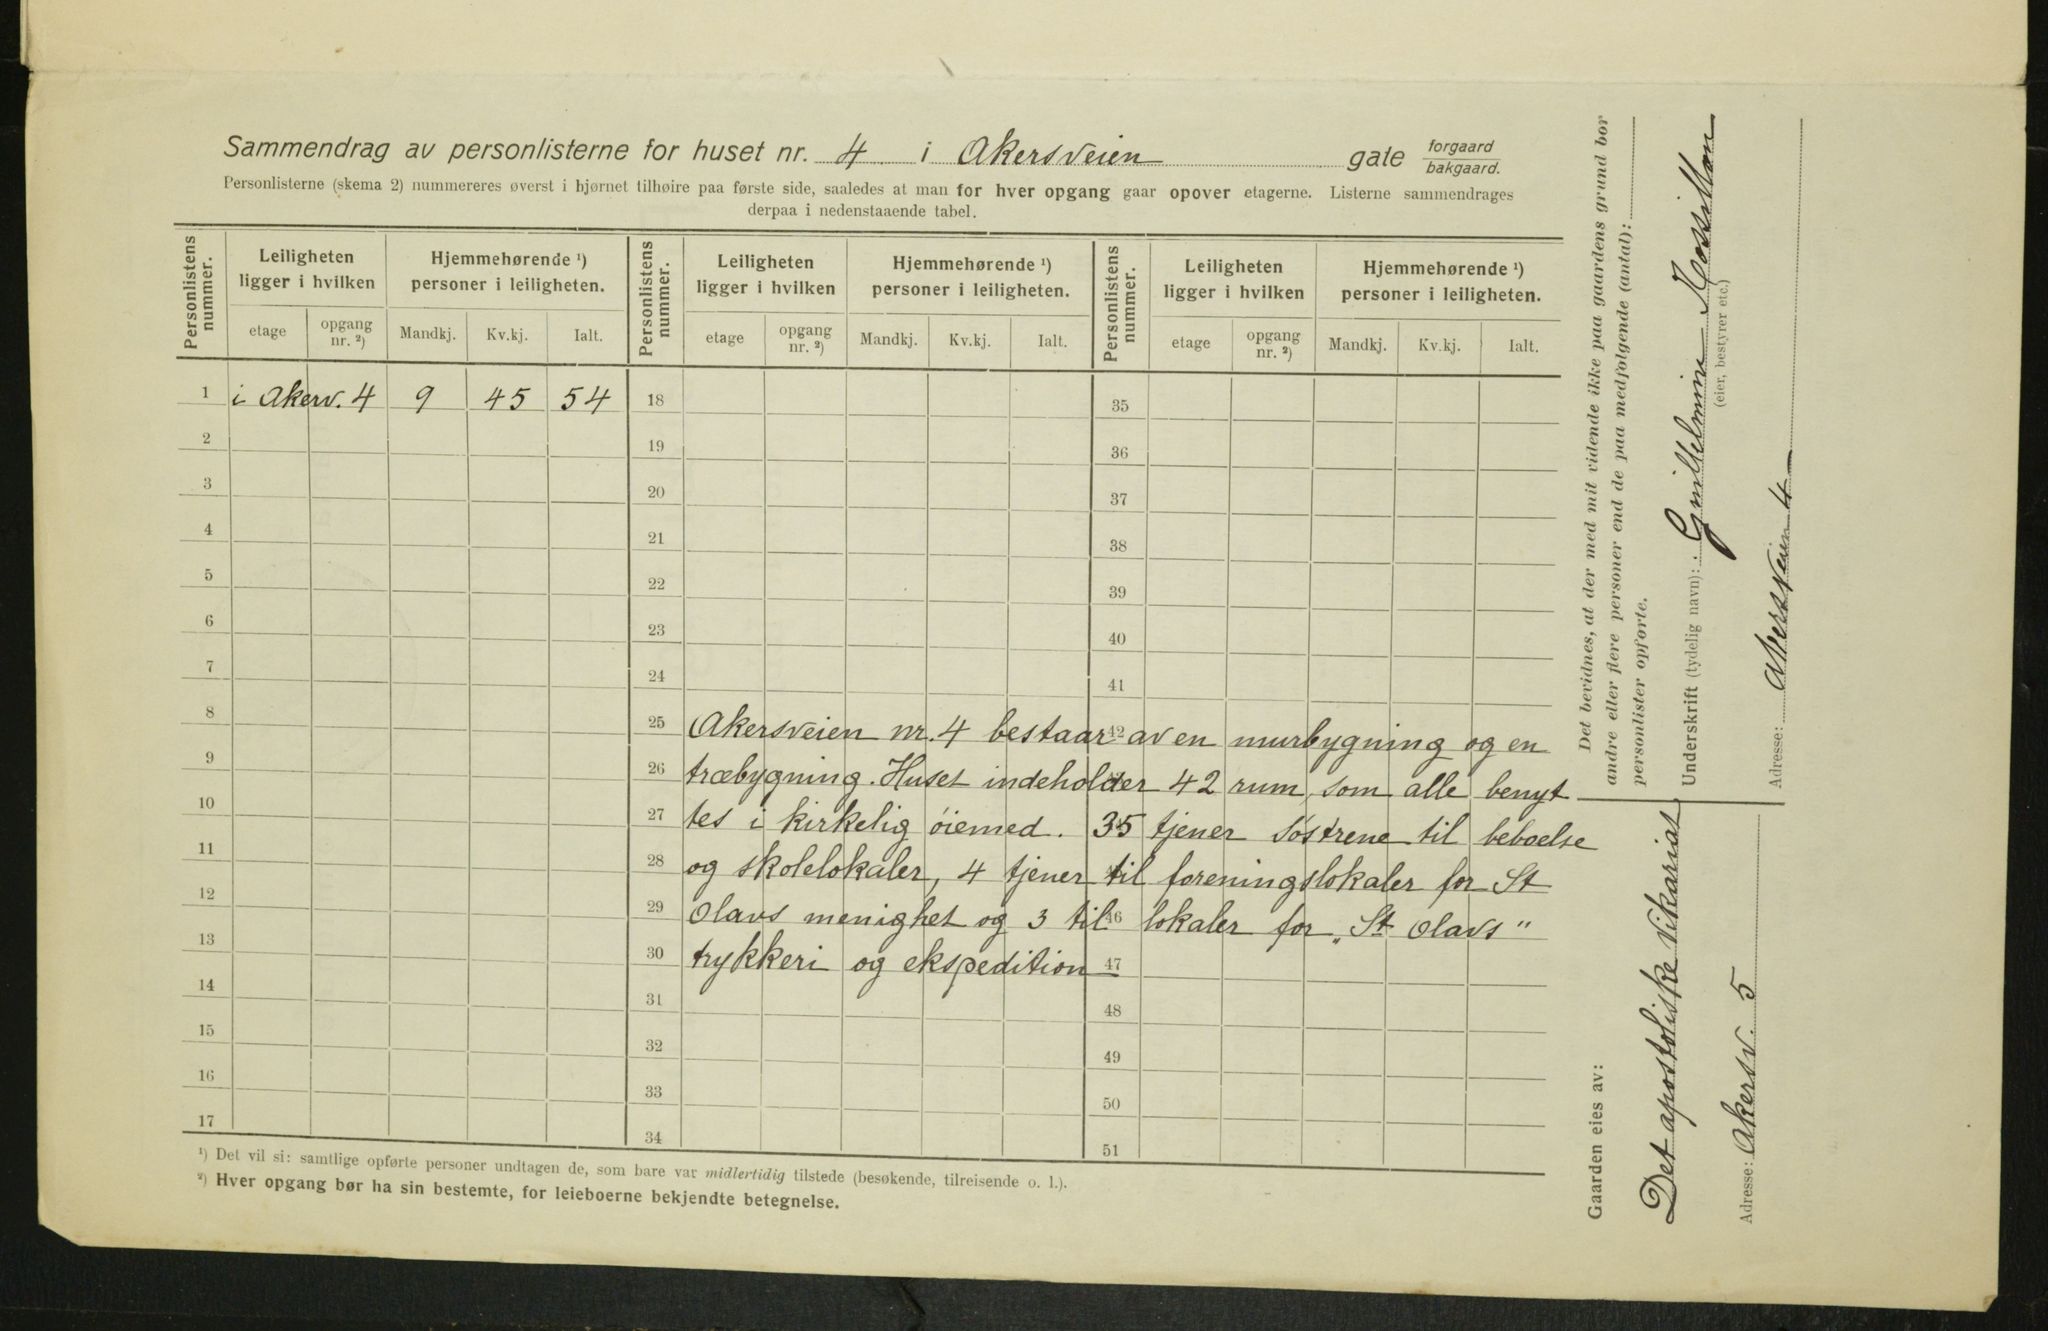 Sammendrag av personlisterne for huset nr. 4 i Akersveien gate forgaard bakgaard.
Personlisterne (skema 2) nummereres øverst i hjørnet tilhøire paa første side, saaledes at man for hver opgang gaar opover etagerne. Listerne sammendrages
derpaa i nedenstaaende tabel.
Personlistens nummer. Leiligheten ligger i hvilken Hjemmehørende ¹) personer i leiligheten. Personlistens nummer. Leiligheten ligger i hvilken Hjemmehørende ¹) personer i leiligheten. Personlistens nummer. Leiligheten ligger i hvilken Hjemmehørende ¹) personer i leiligheten.
etage opgang nr. ²) Mandkj. Kv.kj. Ialt. etage opgang nr. ²) Mandkj. Kv.kj. Ialt. etage opgang nr. ²) Mandkj. Kv.kj. Ialt.
1 i Akerv. 4 9 45 54 18 35
2 19 36
3 20 37
4 21 38
5 22 39
6 23 40
7 24 41
8 25 Akersveien nr. 4 bestaar 42 av en murbygning og en
9 26 træbygning. Huset indeholder 42 rum, som alle benyt
10 27 tes i kirkelig øiemed. 35 tjener Søstrene til beboelse
11 28 og skolelokaler, 4 tjener til foreningslokaler for St
12 29 Olavs menighet og 3 til 46 lokaler for „St Olavs"
13 30 trykkeri og ekspedition 47
14 31 48
15 32 49
16 33 50
17 34 51
¹) Det vil si: samtlige opførte personer undtagen de, som bare var midlertidig tilstede (besøkende, tilreisende o. l.).
²) Hver opgang bør ha sin bestemte, for leieboerne bekjendte betegnelse.
Det bevidnes, at der med mit vidende ikke paa gaardens grund bor
andre eller flere personer end de paa medfølgende (antal):
personlister opførte.
Underskrift (tydelig navn): Guillelmine
(eier, bestyrer etc.)
Adresse: Akersveien 4
Gaarden eies av:
Det apostoliske Vikariat
Adresse: Akersv. 5